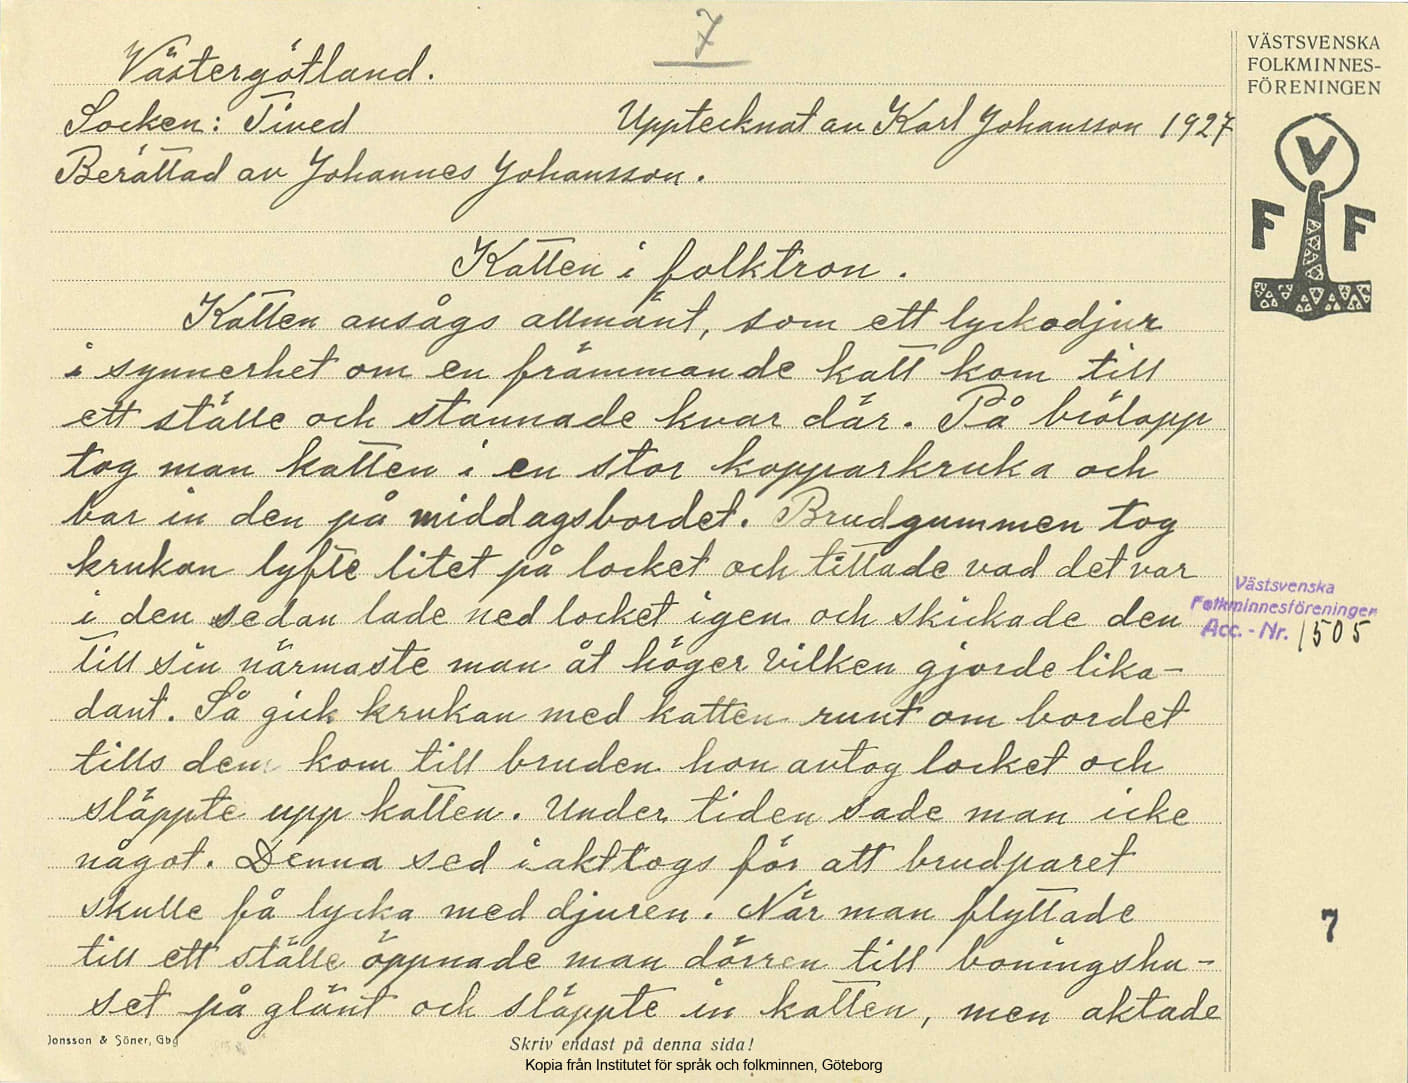 7
VÄSTSVENSKA
FOLKMINNES-
FÖRENINGEN
V
F F
Västergötland.
Socken: Tived Upptecknat av Karl Johansson 1927
Berättad av Johannes Johansson.
Katten i folktron.
Katten ansågs allmänt, som ett lyckodjur
i synnerhet om en främmande katt kom till
ett ställe och stannade kvar där. På brölopp
tog man katten i en stor kopparkruka och
bar in den på middagsbordet. Brudgummen tog
krukan lyfte litet på locket och tittade vad det var
i den sedan lade ned locket igen och skickade den
till sin närmaste man åt höger vilken gjorde lika-
dant. Så gick krukan med katten runt om bordet
tills den kom till bruden hon avtog locket och
släppte upp katten. Under tiden sade man icke
något. Denna sed iakttogs för att brudparet
skulle få lycka med djuren. När man flyttade
till ett ställe öppnade man dörren till boningshu-
set på glänt och släppte in katten, men aktade
Västsvenska
Folkminnesföreningen
Acc.-Nr. 1505
7
Jonsson & Söner, Gbg
Skriv endast på denna sida!
Kopia från Institutet för språk och folkminnen, Göteborg